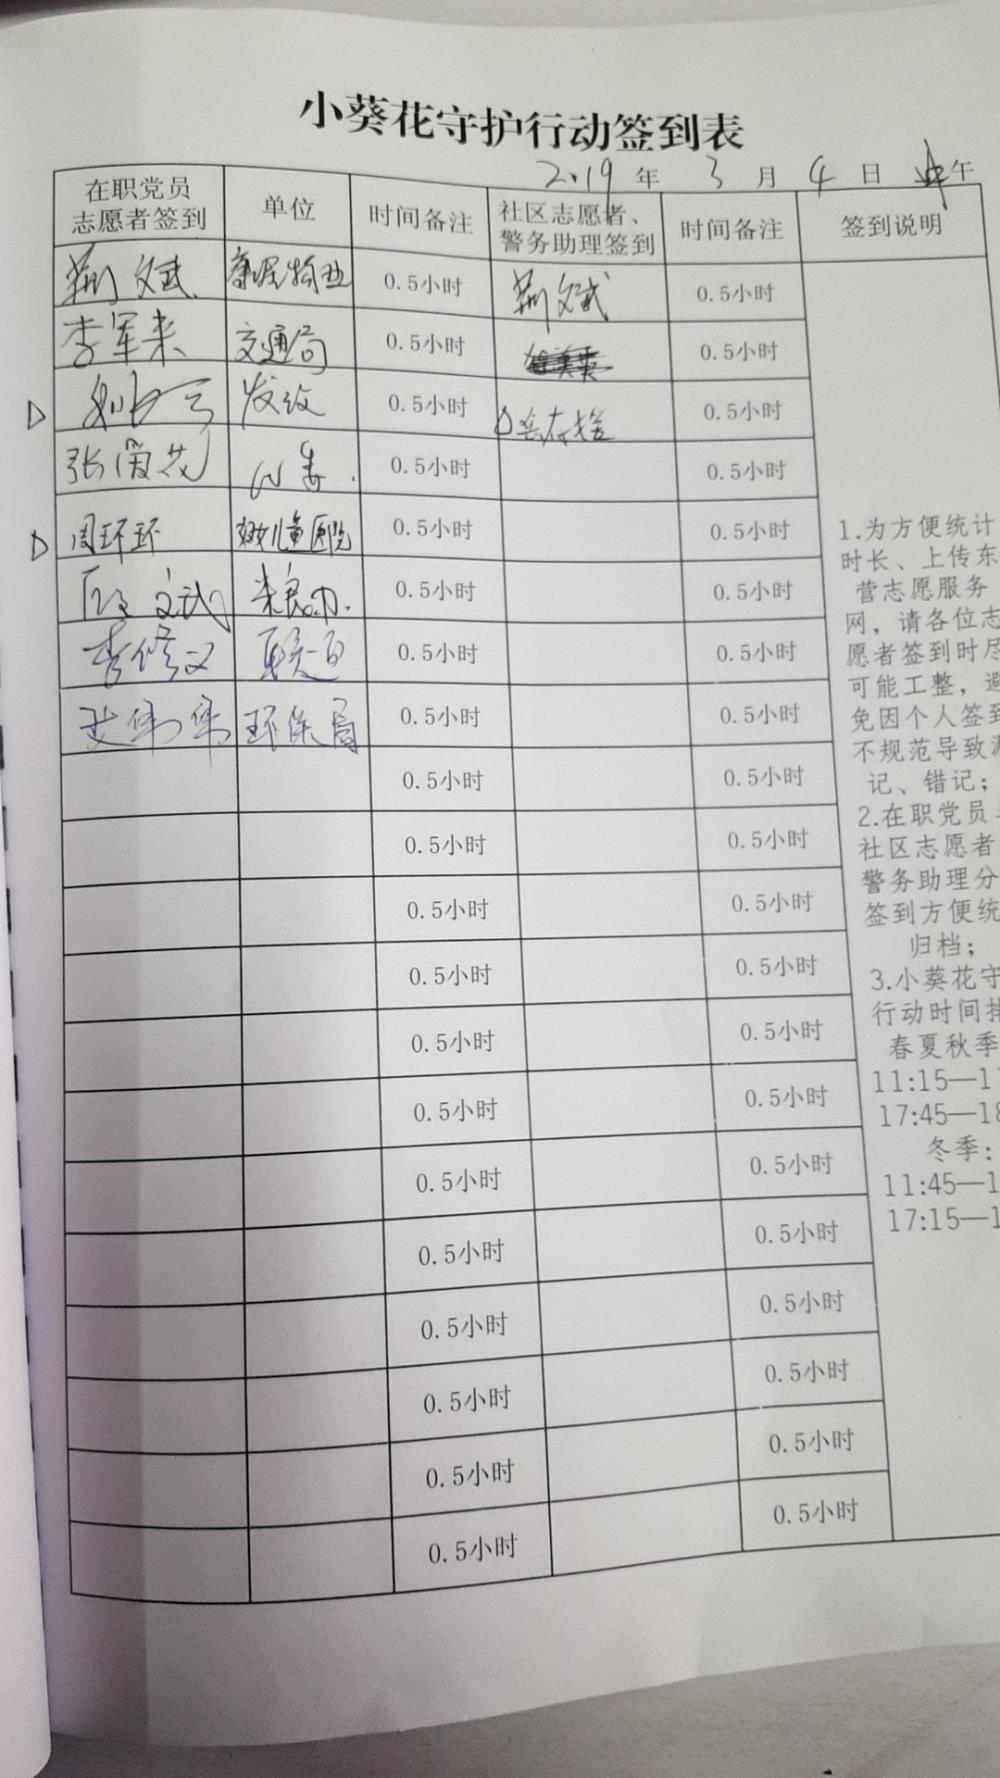 小葵花守护行动签到表
2019 年 3 月 4 日 中午
在职党员
志愿者签到 单位 时间备注 社区志愿者、
警务助理签到 时间备注 签到说明
荆文斌 康居物业 0.5小时 荆文斌 0.5小时
李军来 交通局 0.5小时 0.5小时
0.5小时 0.5小时
张爱花 0.5小时 0.5小时
周环环 妇女儿童医院 0.5小时 0.5小时
文武 0.5小时 0.5小时
李修文 0.5小时 0.5小时
史伟伟 环保局 0.5小时 0.5小时
0.5小时 0.5小时
0.5小时 0.5小时
0.5小时 0.5小时
0.5小时 0.5小时
0.5小时 0.5小时
0.5小时 0.5小时
0.5小时 0.5小时
0.5小时 0.5小时
0.5小时 0.5小时
0.5小时 0.5小时
0.5小时 0.5小时
0.5小时 0.5小时
1.为方便统计
时长、上传东
营志愿服务
网，请各位志
愿者签到时尽
可能工整，避
免因个人签到
不规范导致漏
记、错记；
2.在职党员
社区志愿者
警务助理分
签到方便统
归档；
3.小葵花守
行动时间
春夏秋季
11:15—1
17:45—18
冬季：
11:45—1
17:15—1